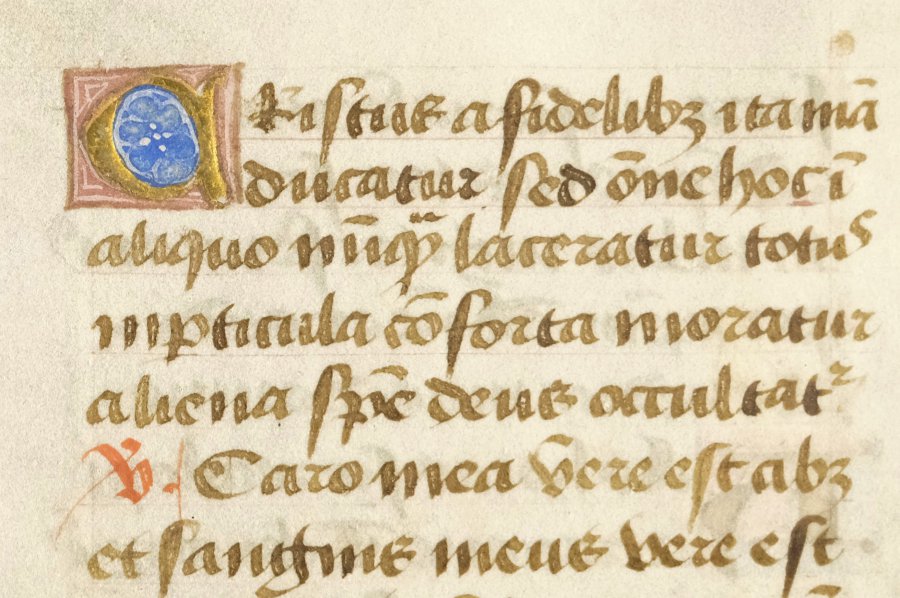 Cristus a fidelibꝫ ita mā
ducatur sed ōne hoc ī
aliquo nūqͣ laceratur totus
in ꝑticula cōforta moratur
aliena spē deus occultatr
V. Caro mea vere est cibꝫ
et sanguis meus vere est